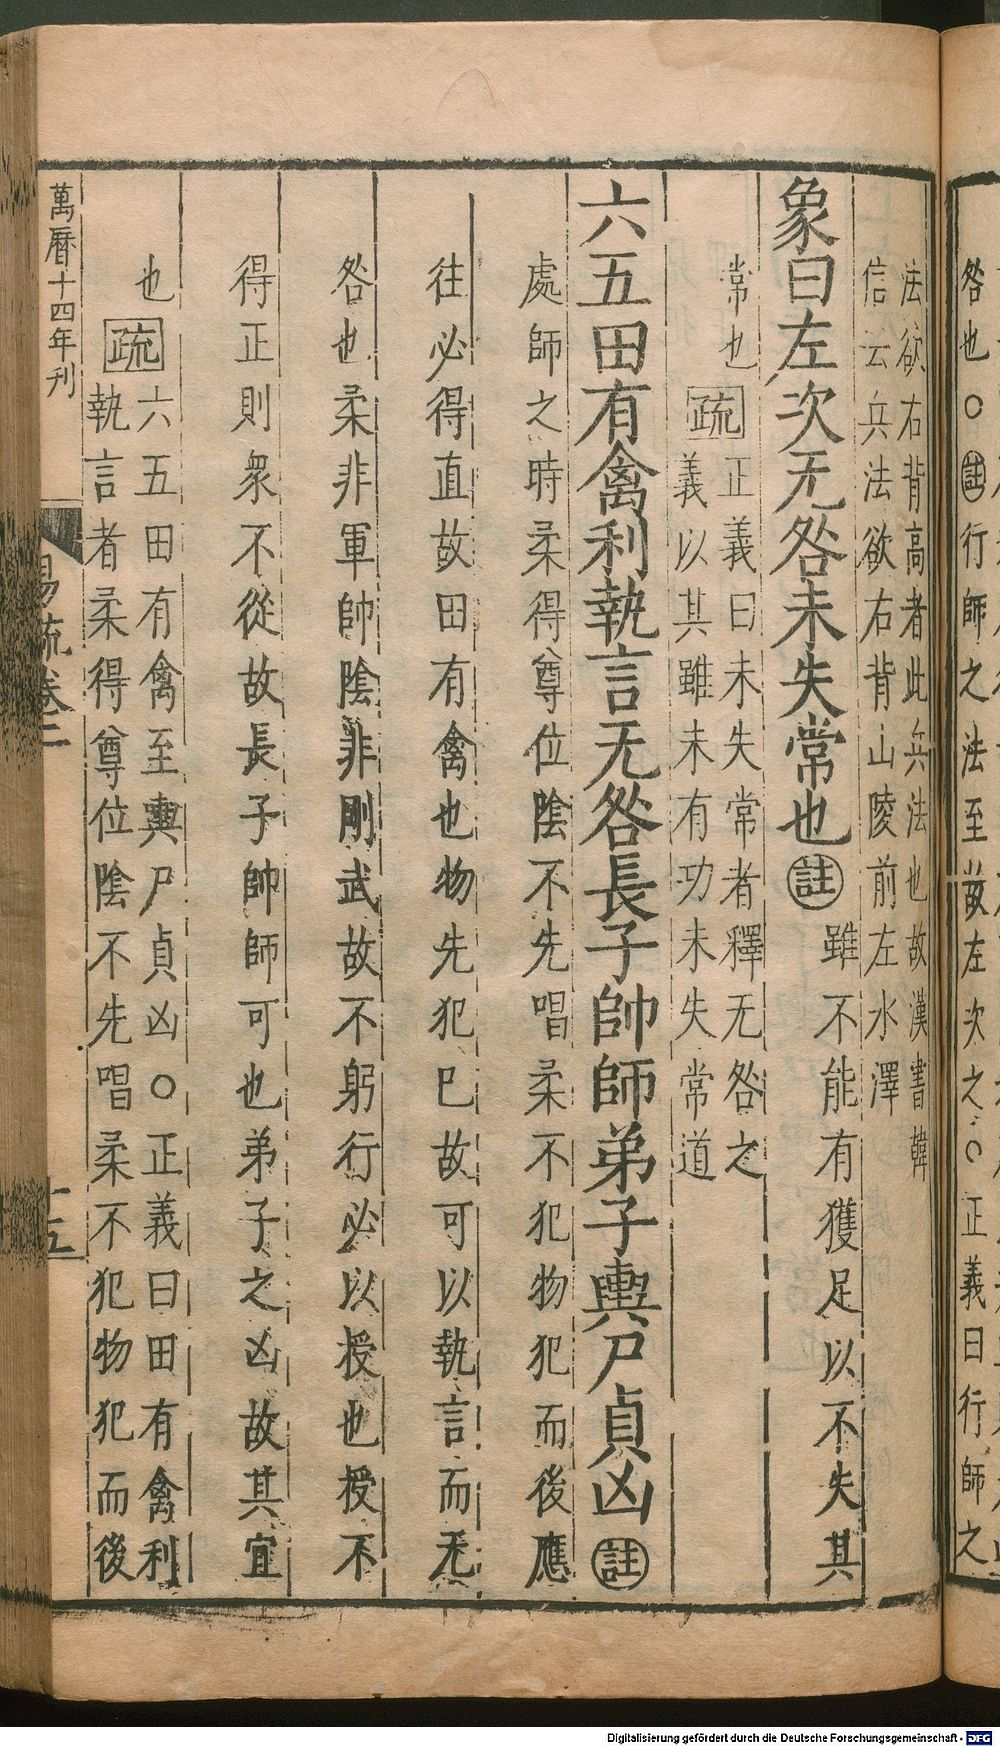 咎也○註行師之法至故左次之○正義曰行師之
法欲右背高者此兵法也故漢書韓
信云兵法欲右背山陵前左水澤
象曰左次无咎未失常也註雖不能有獲足以不失其
常也疏正義曰未失常者釋无咎之
義以其雖未有功未失常道
六五田有禽利執言无咎長子帥師弟子輿尸貞凶註
處師之時柔得尊位陰不先唱柔不犯物犯而後應
往必得直故田有禽也物先犯巳故可以執言而无
咎也柔非軍帥陰非剛武故不躬行必以授也授不
得正則衆不從故長子帥師可也弟子之凶故其宜
也疏六五田有禽至輿尸貞凶○正義曰田有禽利
執言者柔得尊位陰不先唱柔不犯物犯而後
萬曆十四年刊
易疏卷二
十五
Digitalisierung gefördert durch die Deutsche Forschungsgemeinschaft - DFG